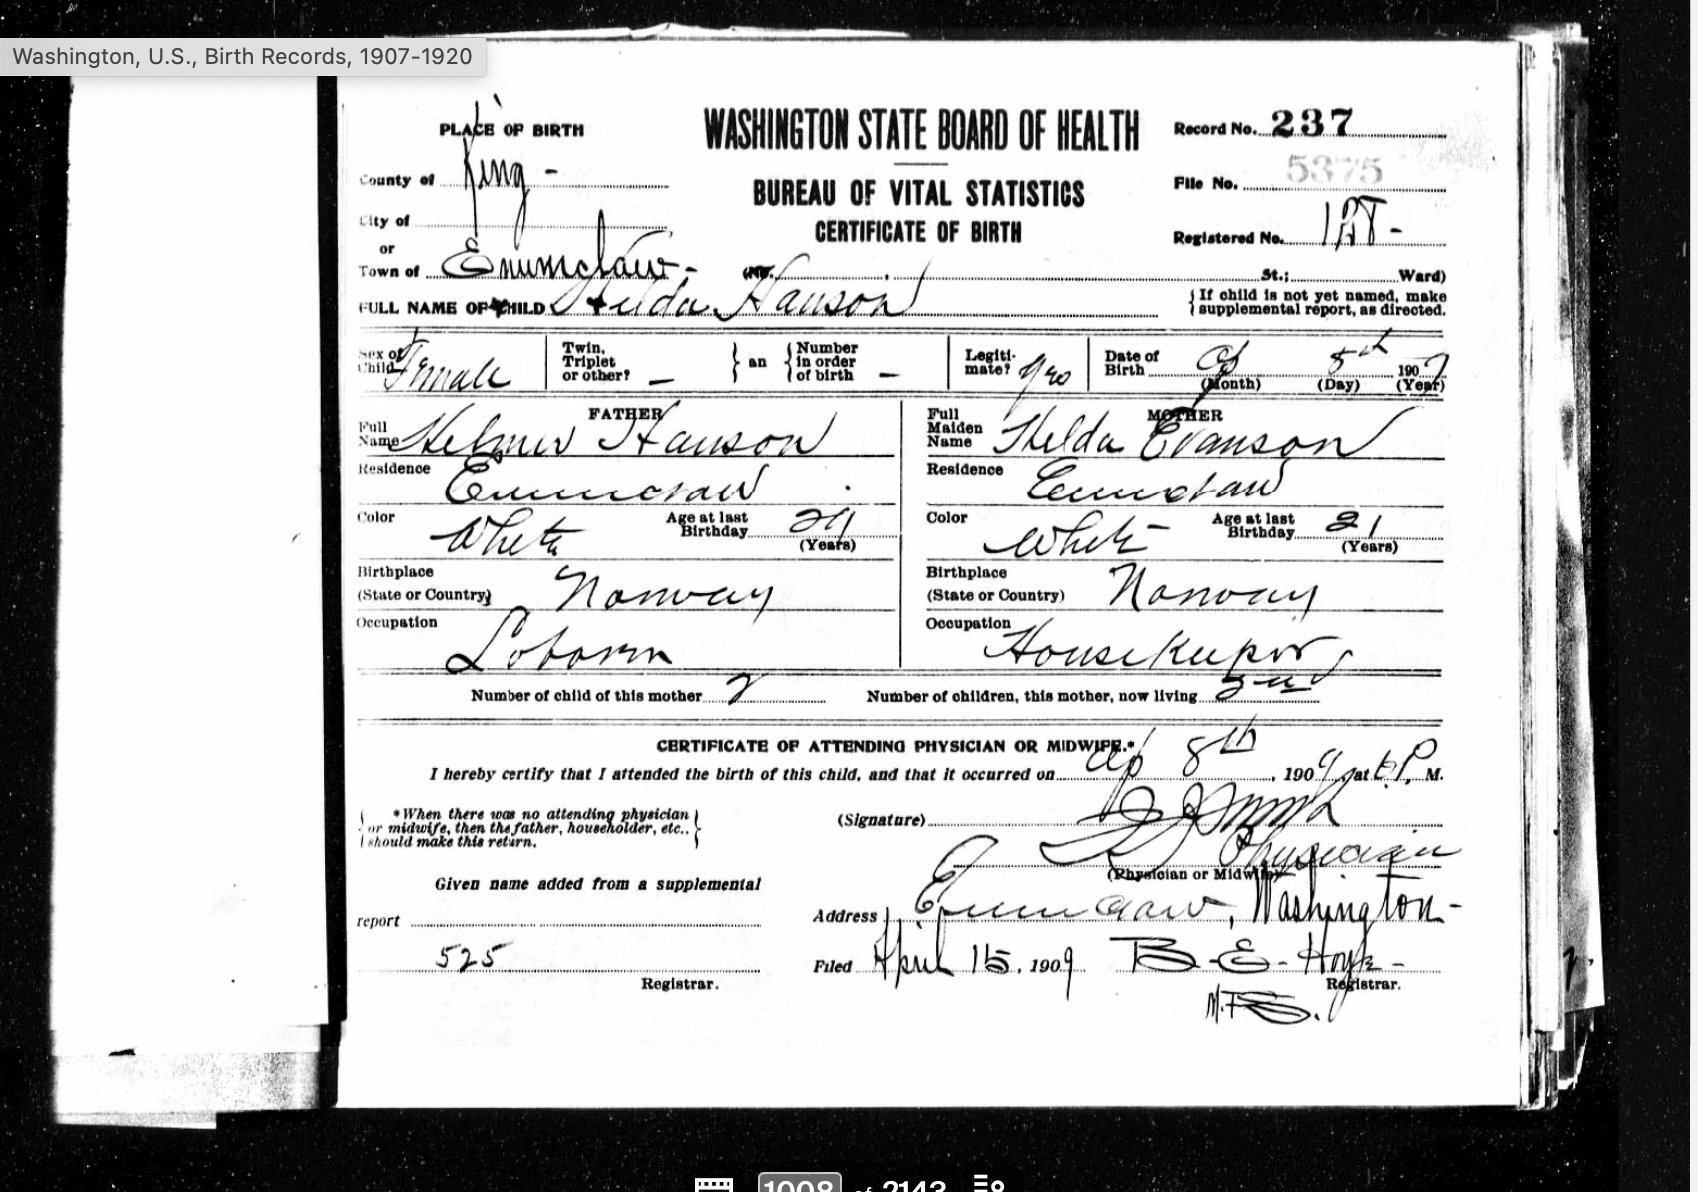 Washington, U.S., Birth Records, 1907-1920
PLACE OF BIRTH
WASHINGTON STATE BOARD OF HEALTH
Record No. 237
County of King -
BUREAU OF VITAL STATISTICS
File No. 5375
City of
CERTIFICATE OF BIRTH
Registered No.
or
Town of Enumclaw - (No. St.; Ward)
FULL NAME OF CHILD Hilda Hanson
{If child is not yet named, make
supplemental report, as directed.
Sex of Child Female
Twin, Triplet or other? —
} an {
Number in order of birth —
Legiti-mate? yes
Date of Birth (Month) (Day) 190 (Year)
FATHER
Full Name Helmer Hanson
Residence Enumclaw
Color White
Age at last Birthday 29 (Years)
Birthplace (State or Country) Norway
Occupation
MOTHER
Full Maiden Name Hilda Evanson
Residence Enumclaw
Color White
Age at last Birthday 21 (Years)
Birthplace (State or Country) Norway
Occupation Housekeeper
Number of child of this mother 2
Number of children, this mother, now living
CERTIFICATE OF ATTENDING PHYSICIAN OR MIDWIFE.*
I hereby certify that I attended the birth of this child, and that it occurred on Ap 8th, 1909, at 6 P. M.
{*When there was no attending physician
or midwife, then the father, householder, etc.,
should make this return.}
(Signature)
Physician
(Physician or Midwife)
Given name added from a supplemental
report
Address Enumclaw, Washington -
525
Registrar.
Filed April 15, 1909 B. E. Hoye -
Registrar.
1008 of 2143